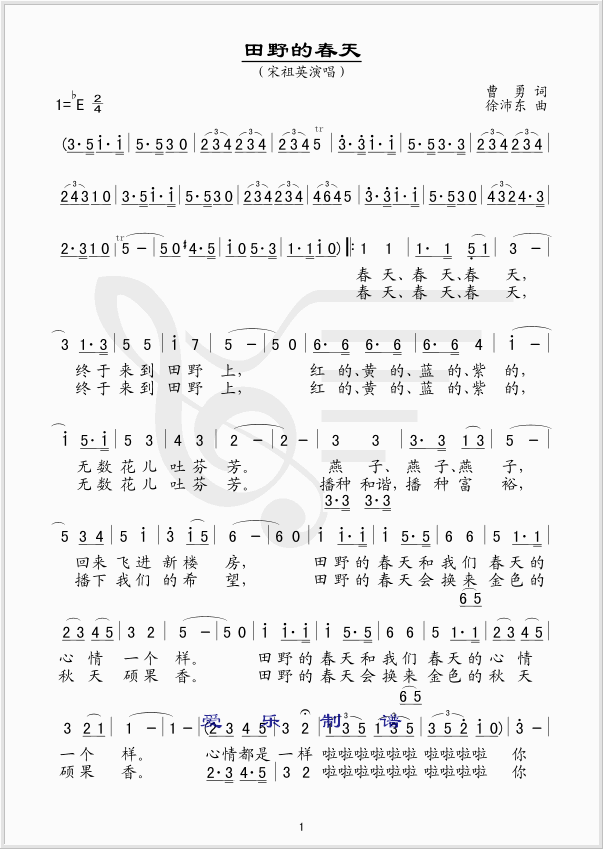 田野的春天
（宋祖英演唱）
1=♭E 2/4
曹 勇 词
徐沛东 曲
(3·5i·i | 5·530 | 234234 | 2345 | 3·3i·i | 5·53·3 | 234234 |
24310 | 3·5i·i | 5·530 | 234234 | 64645 | 3·3i·i | 5·530 | 4324·3 |
2·310 | 5 – | 50#4·5 | i05·3 | 1·1i0) ‖: 1 1 | 1·1 51 | 3 – |
春 天、春 天、春 天，
春 天、春 天、春 天，
3 1·3 | 5 5 | i 7 | 5 – | 5 0 | 6·6 6·6 | 6·6 4 | i – |
终于 来到 田野 上， 红 的、黄 的、蓝 的、紫 的，
终于 来到 田野 上， 红 的、黄 的、蓝 的、紫 的，
i 5·i | 5 3 | 4 3 | 2 – | 2 – | 3 3 | 3·3 13 | 5 – |
无数 花儿 吐芬 芳。 燕 子、燕 子、燕 子，
无数 花儿 吐芬 芳。 播种 和谐，播 种 富 裕，
3·3 3·3
5 34 | 5 i | 3 i | 5 – | 5 0 | i i·i | i 5·5 | 6 6 | 5 1·1 |
回来 飞进 新楼 房， 田野的 春天和 我们 春天的
播下 我们 的希 望， 田野的 春天会 换来 金色的
6 5
23 45 | 3 2 | 5 – | 5 0 | i i·i | i 5·5 | 6 6 | 5 1·1 | 23 45 |
心 情 一个 样。 田野的 春天和 我们 春天的 心 情
秋 天 硕果 香。 田野的 春天会 换来 金色的 秋 天
6 5
爱 乐 制 谱
3 21 | 1 – | 1 – | (23 45 | 3 2 | 135 135 | 135 135 | 352·i0) | 3 – |
一个 样。 心情都是 一样 啦啦啦 啦啦啦 啦啦啦 啦 你
硕果 香。 2·3 4·5 | 3 2 啦啦啦 啦啦啦 啦啦啦 啦 你
1